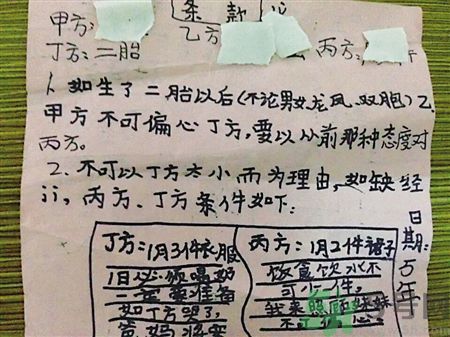 条款
甲方:
乙方
丙方:
丁方:二胎
1、如生了二胎以后(不论男女龙凤、双胞)乙
甲方不可偏心丁方,要以从前那种态度对
丙方。
2、不可以丁方太小而为理由,如缺经
丙方、丁方条件如下:
丁方:1月3件衣服
1日必须喝奶
一定要准备
如丁方哭了,
爸妈将要
丙方:1月2件裙子
饭食饮水不
可少一件,
我来照顾妹妹
日期:万年